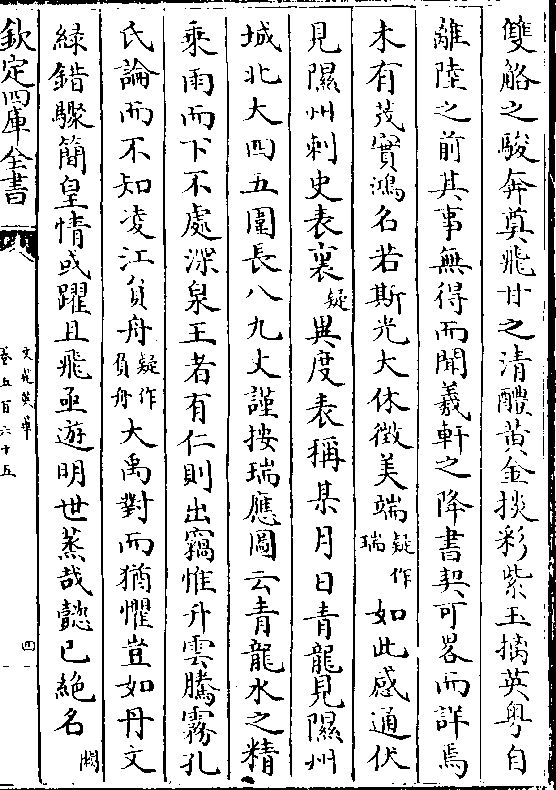 雙觡之駿奔奠飛甘之清醴黄金掞彩紫玉摛英粤自
離陸之前其事無得而聞羲軒之降書契可畧而詳焉
未有茂實鴻名若斯光大休徴美端疑作瑞如此感通伏
見隰州刺史表裏疑異度表稱某月日青龍見隰州
城北大四五圍長八九丈謹按瑞應圖云青龍水之精
乘雨而下不處深泉王者有仁則出竊惟升雲騰霧孔
氏論而不知凌江負舟疑作負舟大禹對而猶懼豈如丹文
緑錯驟簡皇情或躍且飛亟遊明世蒸哉懿已絶名闕
欽定四庫全書
文苑英華
卷五百六十五
四